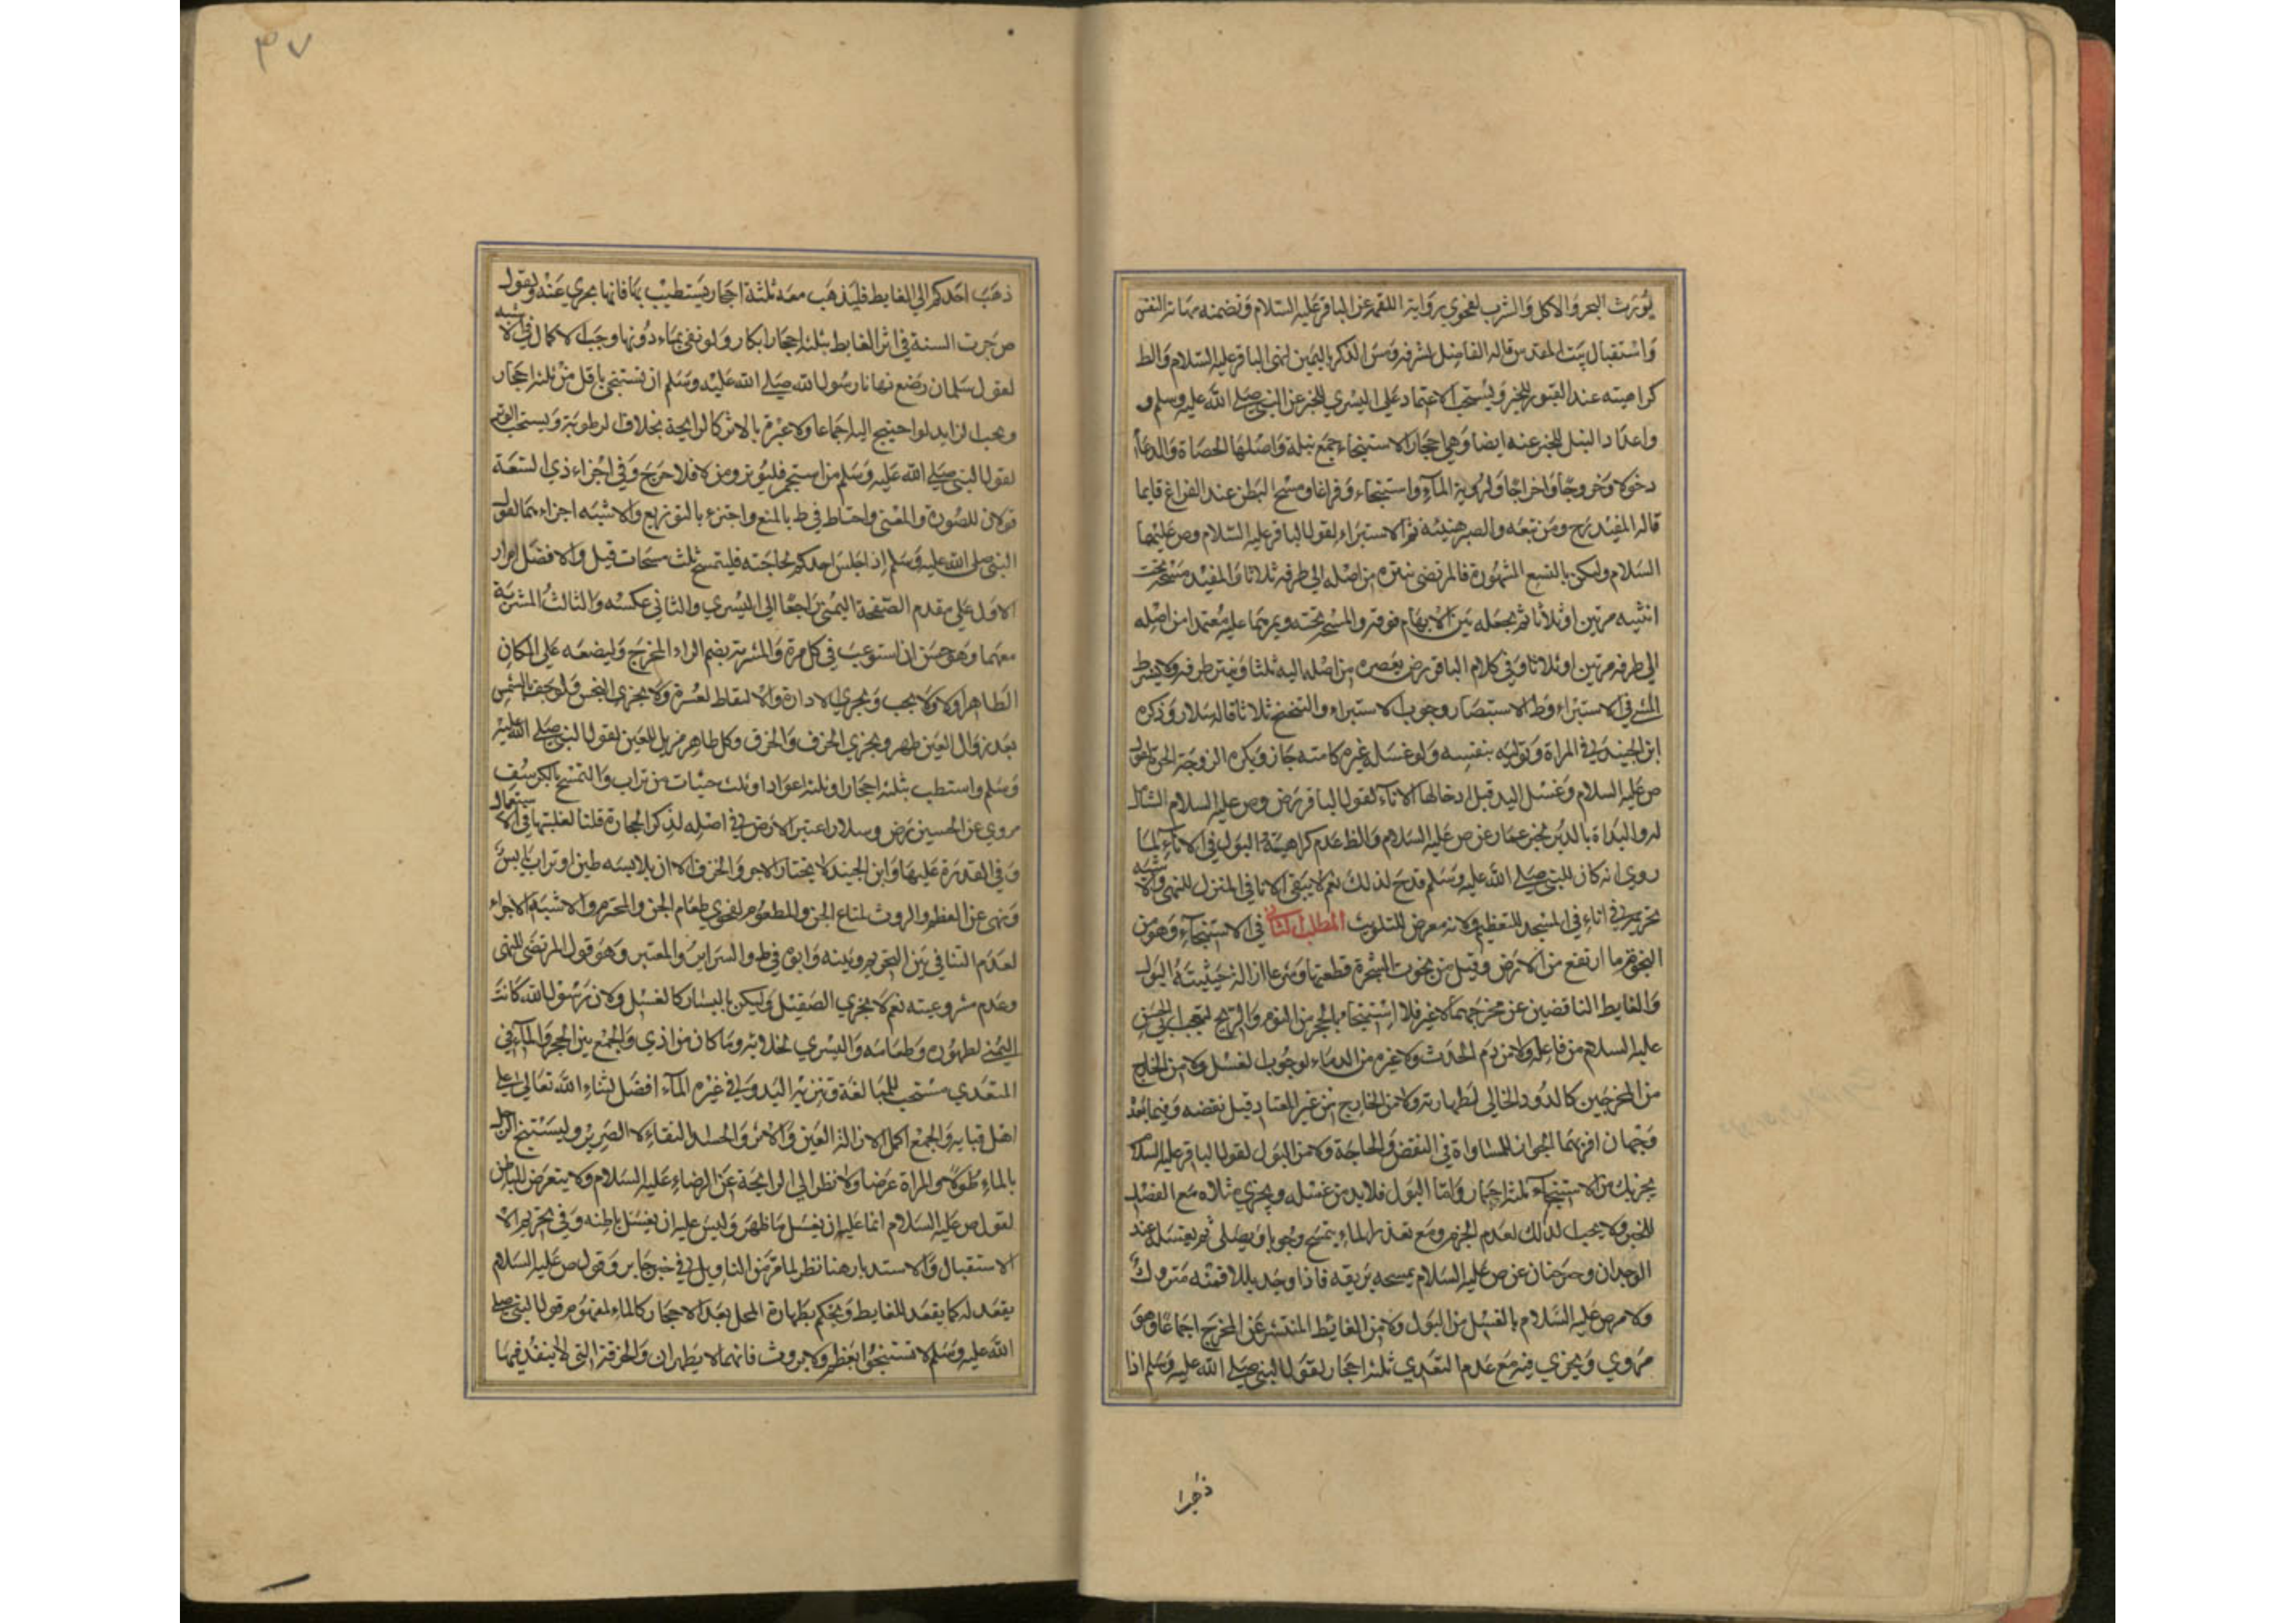 يورث البخر والاكل والشرب لفحوي رواية اللقمة عن الباقر عليه السلام وتضمنه مهانة النفس
واستقبال بيت المقدس قاله الفاضل لشرفه ومس الذكر باليمين لنهي الباقر عليه السلام والظ
كراهيته عند القبور للخبر ويستحب الاعتماد علي اليسري للخبر عن النبي صلي الله عليه وسلم و
واعداد النبل للخبر عنه ايضا وهي احجار الاستنجاء جمع نبلة واصلها الحصاة والدعاء
دخولا وخروجا واخراجا ولرؤية الماء واستنجاء وفراغا ومسح البطن عند الفراغ قايما
قاله المفيد رح ومن تبعه والصبر هنيئة ثم الاستبراء لقول الباقر عليه السلام وص عليهما
السلام وليكن بالتسع المشهورة فالمرتضي نتره من اصله الي طرفه ثلاثا والمفيد مسحه تحت
انثييه مرتين او ثلاثا ثم يجعله بين الابهام فوقه والمسبحة تحته ويمرهما عليه معتمدا من اصله
الي طرفه مرتين او ثلاثا وفي كلام الباقر رض يعصره من اصله اليه ثلثا وينتر طرفه ولا يشترط
المشي في الاستبراء وظ الاستبصار وجوب الاستبراء والتنحنح ثلاثا قاله سلار وذكره
ابن الجنيد في المراة وتوليه بنفسه ولو غسله غيره كامته جاز ويكره الزوجة الحرة لقول
ص عليه السلام وغسل اليد قبل ادخالها الاناء لقول الباقر رض وص عليه السلام الشامل
له والبداة بالدبر لخبر عمار عن ص عليه السلام والظ عدم كراهية البول في الاناء لما
روي انه كان للنبي صلي الله عليه وسلم قدح لذلك نعم لا يبقي الانا في المنزل للنهي والاشبه
تحريمه في اناء في المسجد للتعظيم ولانه معرض للتلويث المطلب الثاني في الاستنجاء وهو من
النجوة ما ارتفع من الارض وقيل من نجوت الشجرة قطعتها وشرعا ازالة خبثية البول
والغايط الناقضين عن مخرجهما لا غير فلا استنجاء بالحجر من النوم والريح لتعجب ابي الحسن
عليه السلام من فاعله ولا من دم الحدث ولا غيره من الدماء لوجوب الغسل ولا من الخارج
من المخرجين كالدود الخالي لطهارته ولا من الخارج من غير المعتاد قبل نقضه وفيما بعد
وجهان اقربهما الجواز للمساواة في النقض والحاجة ولا من البول لقول الباقر عليه السلام
يجزيك من الاستنجاء ثلثة احجار واما البول فلا بد من غسله ويجزي مثلاه مع الفضل
للخبر ولا يجب لدلك لعدم الجرم ومع تعذر الماء يتمسح وجوبا ويصلي ثم يغتسله عند
الوجدان وخبر حنان عن ص عليه السلام يمسحه بريقه فاذا وجد بللا فمنه متروك
ولامر ص عليه السلام بالغسل من البول ولا من الغايط المنتشر عن المخرج اجماعا وهو
مروي ويجزي فيه مع عدم التعدي ثلثة احجار لقول النبي صلي الله عليه وسلم اذا
ذهب احدكم
٣٧
ذهب احدكم الي الغايط فليذهب معه ثلثة احجار يستطيب بها فانها تجزي عنه ولقول
ص جرت السنة في اثر الغايط بثلثة احجار ابكار ولو نقي بماء دونها وجب الاكمال في الاشبه
لقول سلمان رض نهانا رسول الله صلي الله عليه وسلم ان نستنجي باقل من ثلثة احجار
ويجب الزايد لو احتيج اليه اجماعا ولا عبرة بالاثر كالرايحة بخلاف الرطوبة ويستحب الوتر
لقول النبي صلي الله عليه وسلم من استجمر فليوتر ومن لا فلا حرج وفي اجزاء ذي الشعبة
قولان للصورة والمعني واحتاط في ط بالمنع واجتزء بالتوزيع والاشبه اجزاءهما لقول
النبي صلي الله عليه وسلم اذا جلس احدكم لحاجته فليتمسح ثلث مسحات قيل والافضل امرار
الاول علي مقدم الصفحة اليمني راجعا الي اليسري والثاني عكسه والثالث المشربة
معهما وهو حسن ان استوعب في كل مرة والمشربة بضم الراء المخرج وليضعه علي المكان
الطاهر اولا ولا يجب ويجزي الادارة والالتقاط لعسره ولا يجزي النجس ولو جف بالشمس
بعد زوال العين طهر ويجزي الخزف والخرق وكل طاهر مزيل للعين لقول النبي صلي الله عليه
وسلم واستطب بثلثة احجار او ثلثة اعواد او ثلث حثيات من تراب والتمسح بالكرسف
مروي عن الحسين رض وسلار اعتبر الارض في اصله لذكر الحجارة قلنا لغلبتها في الاستعمال
وفي القدرة عليها وابن الجنيد لا يختار الاجر والخزف الا ان يلابسه طين او تراب يابس
ونهي عن العظم والروث لمتاع الجن والمطعوم لفحوي طعام الجن والمحترم والاشبه الاجزاء
لعدم التنافي بين التحريم وبينه وابوه في ط والسراير والمعتبر وهو قول المرتضي للنهي
وعدم مشروعيته نعم لا يجزي الصقيل وليكن باليسار كالغسل ولان رسول الله كانت
اليمني لطهوره وطعامه واليسري لخلائه وما كان من اذي والجمع بين الحجر والماء في
المتعدي مستحب للمبالغة وتنزيه اليد وفي غيره الماء افضل لثناء الله تعالي علي
اهل قبا به والجمع اكمل لازالة العين والاثر والحسد النقاء لا الصرير وليستنج الرجل
بالماء طولا والمراة عرضا ولا نظر الي الرايحة عن الرضاء عليه السلام ولا يتعرض للباطن
لقول ص عليه السلام انما عليه ان يغسل ما ظهر وليس عليه ان يغسل باطنه وفي تحريم الا
الاستقبال والاستدبار هنا نظر لما مر من التاويل في خبر جابر وقول ص عليه السلام
يقعد له كما يقعد للغايط ويحكم بطهارة المحل بعد الاحجار كالماء لمفهوم قول النبي صلي
الله عليه وسلم لا تستنجوا بعظم ولا بروث فانهما لا يطهران والخرقة التي لا ينفذ فيها